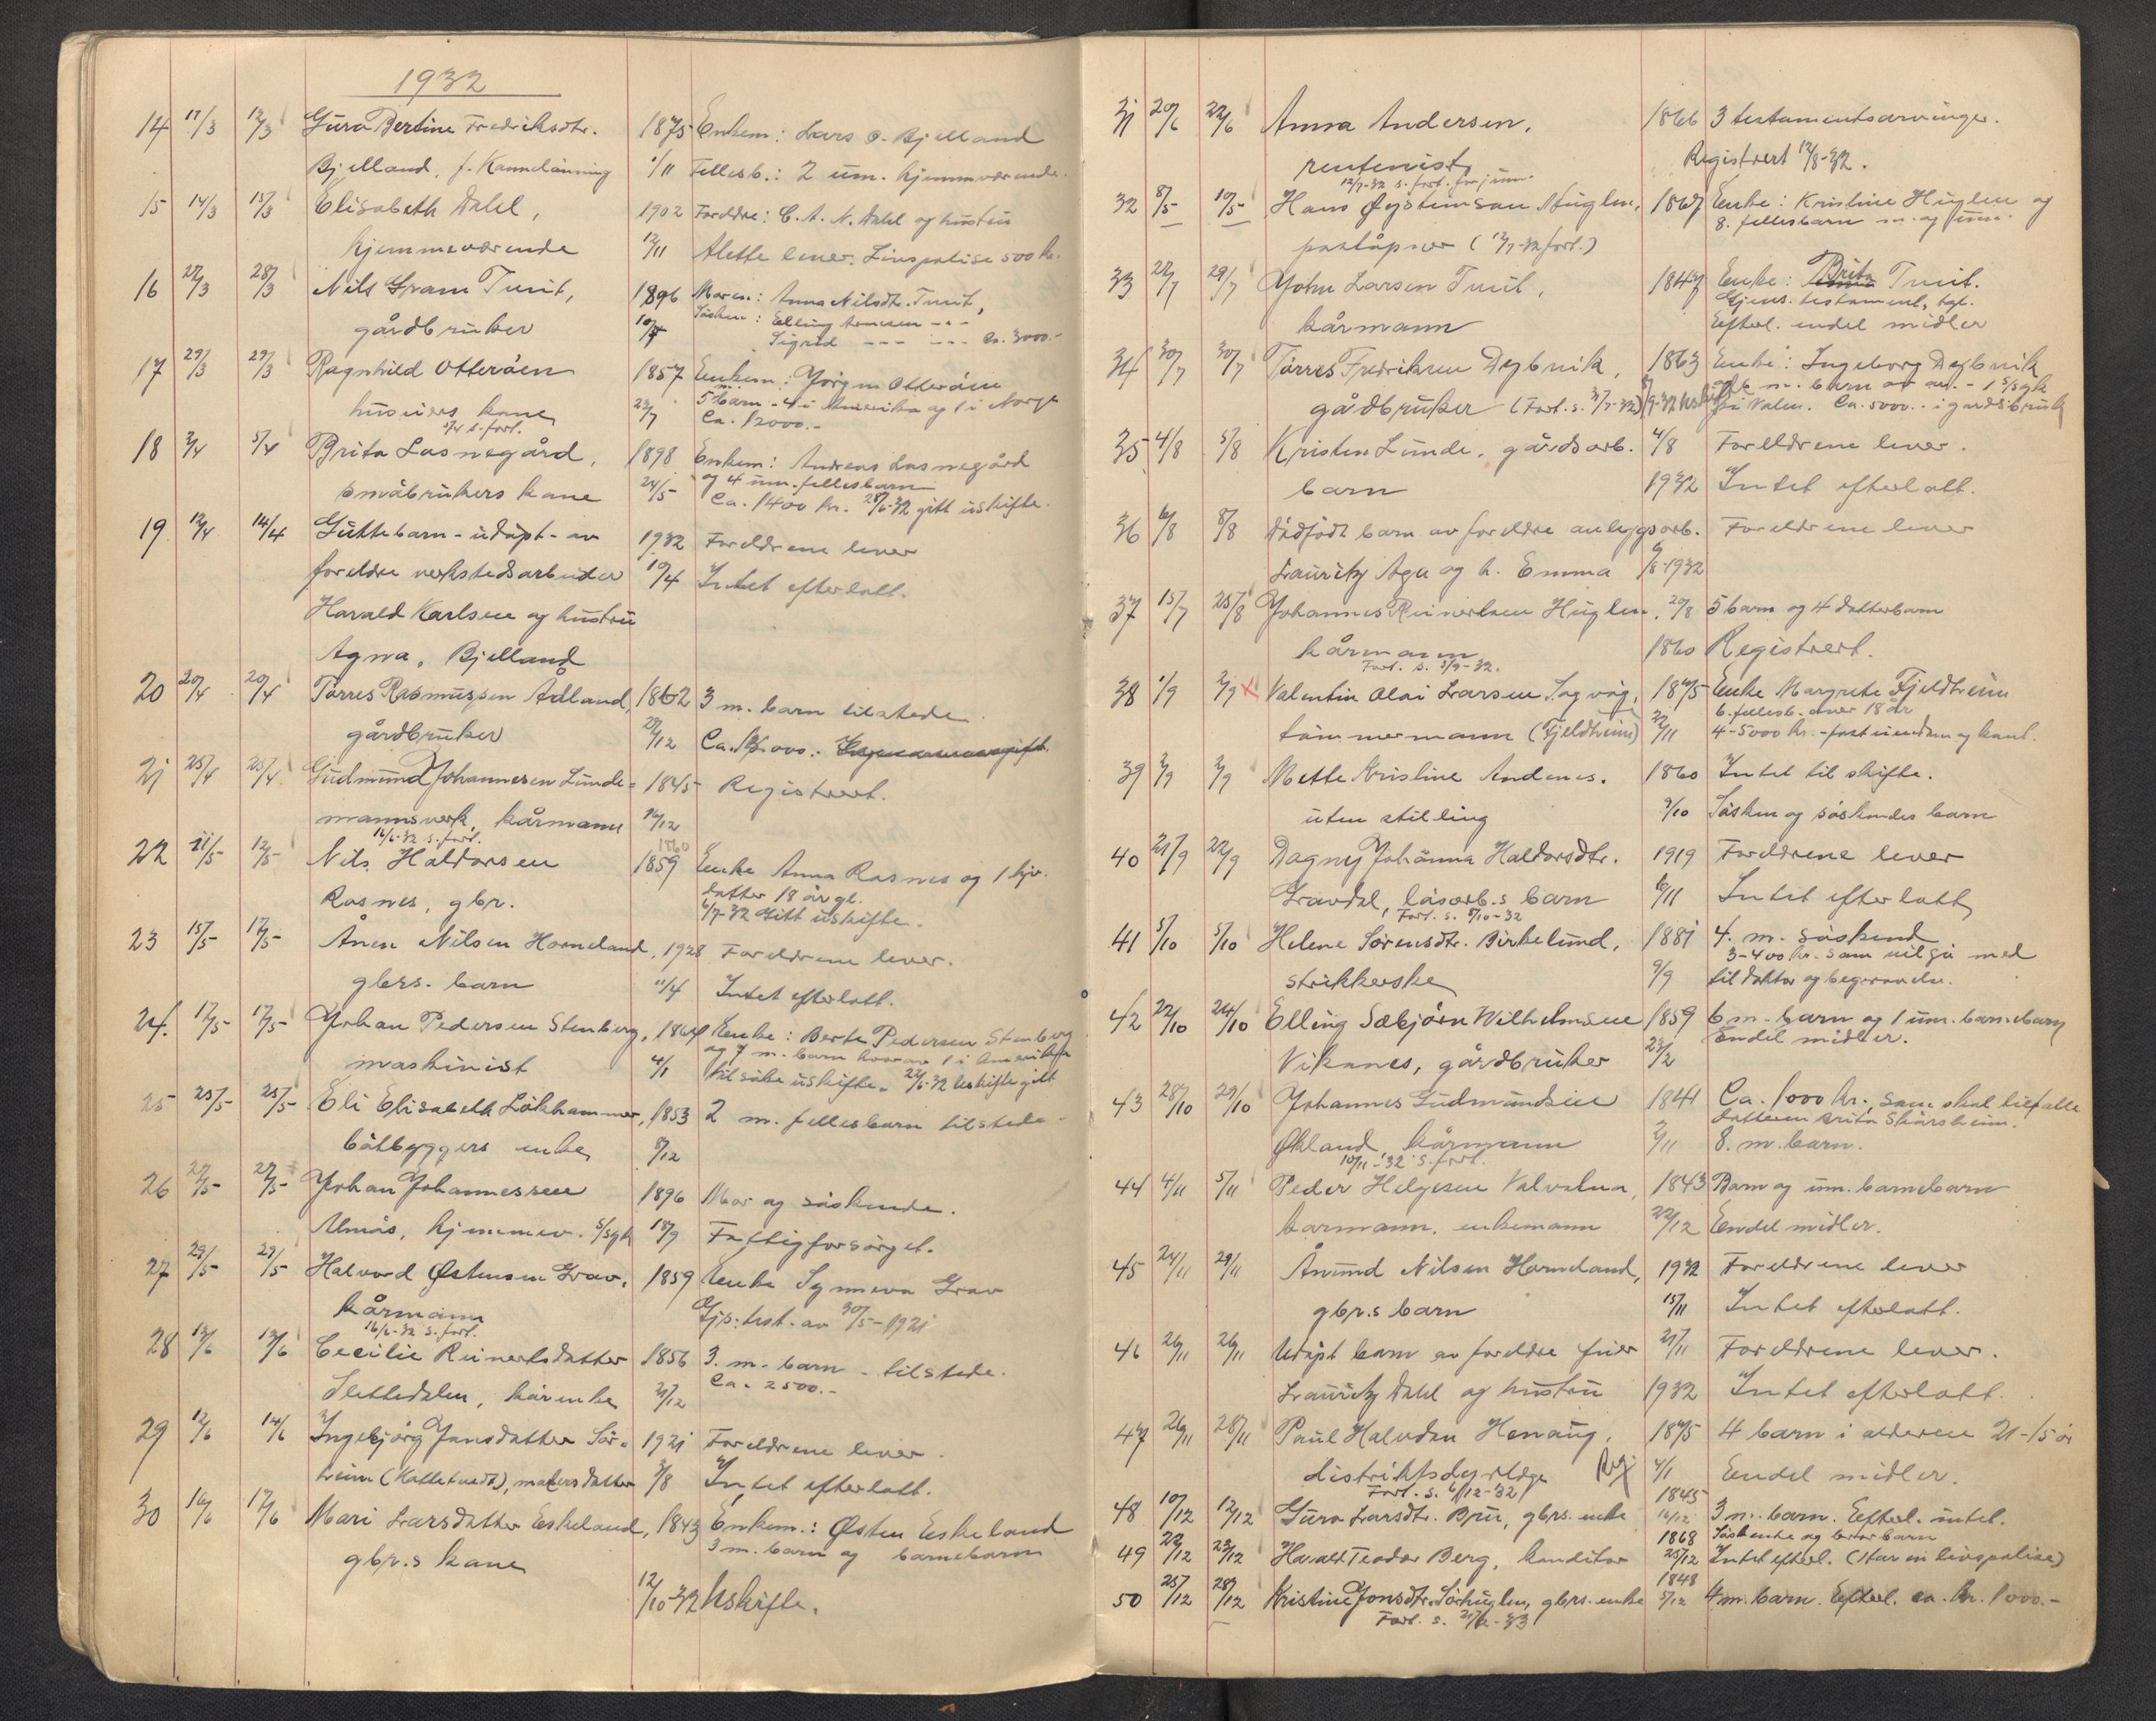 1932
14 11/3 12/3 Guro Bertine Fredriksdtr. 1875 Enkem: Lars O. Bjelland
Bjelland, f. Kanndönning 1/11 Fellesb.: 2 um. hjemmeværende.
15 14/3 15/3 Elisabeth Dahl, 1902 Foreldre: C. A. N. Dahl og hustru
hjemmeværende 12/11 Alette lever. Livspolise 500 kr.
16 27/3 28/3 Nils Gram Tveit, 1896 Moren: Anna Nilsdtr. Tveit,
gårdbruker 10/7 Søsken: Elling Arnesen - -
Sigrid --- --- Ca. 3000.-
17 29/3 29/3 Ragnhild Otteröen 1857 Enkem: Jörgen Otteröen
husmens kone 23/7 5 m. barn - 4 i Amerika og 1 i Norge
5/4 s. forl. Ca. 12000.-
18 3/4 5/4 Brita Lasnegård, 1898 Enkem: Andreas Lasnegård
småbrukers kone 24/5 og 4 um. fellesbarn
Ca. 1400 kr. 28/6-32 gitt uskifte.
19 12/4 14/4 Guttebarn - udöpt - av 1932 Foreldrene lever
foreldre verkstedsarbeider 10/4 Intet efterlatt.
Harald Karlsen og hustru
Agna, Bjelland
20 20/4 20/4 Tørres Rasmussen Ådland, 1862 3 m. barn tilstede.
gårdbruker 28/12 Ca.
21 25/4 25/4 Gudmund Johannesen Lunde- 1845 Registrert.
mannsverk, kårmann 16/12
16/6-32 s. forl. 1860
22 11/5 12/5 Nils Haldorsen 1859 Enke Anna Rasnes og 1 hjv.
Rasnes, gbr. datter 18 år gl.
6/7-32 gitt uskifte.
23 15/5 17/5 Ånen Nilsen Horneland, 1928 Foreldrene lever.
gbrs. barn 11/4 Intet efterlatt.
24. 17/5 17/5 Johan Pedersen Stenberg, 1864 Enke: Berta Pedersen Stenberg
maskinist 4/1 og 7 m. barn hvorav 1 i Amerika
Vil søke uskifte. 22/6-32 Uskifte gitt
25 25/5 25/5 Eli Elisabeth Lökhammer, 1853 2 m. fellesbarn tilstede.
båtbyggers enke 8/12
26 27/5 27/5 Johan Johannessen 1896 Mor og søskende.
Almås, hjemmev. s/syk 18/9 Fattigforsørget.
27 29/5 29/5 Halvard Østensen Grav. 1859 Enke Synneva Grav
kårmann Gjs. test. av 30/5-1921
16/6-32 s. forl.
28 13/6 13/6 Cecilie Reinertsdatter 1856 3. m. barn - tilstede.
Slettedalen, kårenke 31/12 Ca. 2500.-
29 12/6 14/6 Ingebjørg Jonsdatter Sör- 1921 Foreldrene lever.
heim (Kattetvedt), malersdatter 3/8 Intet efterlatt.
30 16/6 17/6 Mari Larsdatter Eskeland, 1843 Enkem.: Østen Eskeland
gbr.s kone 3 m. barn og barnebarn
12/10-32 Uskifte.
31 20/6 22/6 Anna Andersen, 1866 3 testamentsarvinger.
rentenist Registrert 12/8-32.
12/7-32 s. forl.
32 8/5 10/5 Hans Øysteinson Huglen, 1867 Enke: Kristine Huglen og
poståpner (12/7-32 forl.) 8. fellesbarn m. og um.
33 27/7 29/7 John Larsen Tveit, 1847 Enke: Brita Tveit.
kårmann Gjens. testament, tgl.
Efterl. endel midler
34 30/7 30/7 Tørres Fredriksen Dybvik, 1863 Enke: Ingeborg Dybvik
gårdbruker (Forl. s. og 6 m. barn av - 1 s/syk
på Valen. Ca. 5000.- i gårdsbruk
35 4/8 5/8 Kristen Lunde, gårdsarb. 4/8 Foreldrene lever.
barn 1932 Intet efterlatt.
36 6/8 8/8 Dødfödt barn av foreldre anleggsarb. Foreldrene lever
Lauritz Aga og h. Emma 6/8-1932
37 15/7 25/8 Johannes Reinertsen Huglen. 20/8 5 barn og 4 datterbarn
kårmann 1860 Registrert.
Forl. s. 3/9-32.
38 1/9 2/9 x Valentin Olai Larsen Sagvåg, 1865 Enke Margrete Fjeldheim
tömmermann (Fjeldheim) 22/11 6. fellesb. over 18 år
4-5000 kr. - fast eiendom og kont.
39 2/9 2/9 Mette Kristine Andenes. 1860 Intet til skifte.
uten stilling 9/10 Søsken og søskendes barn
40 21/9 22/9 Dagny Johanna Haldorsdtr. 1919 Foreldrene lever
Gravdal, løsarb.s barn 6/11 Intet efterlatt
Forl. s. 5/10-32
41 5/10 5/10 Helene Sørensdtr. Birkelund, 1881 4. m. søskend
strikkerske 9/9 3-400 kr. som vil gå med
til doktor og begravelse.
42 22/10 24/10 Elling Sæbjörn Wilhelmsen 1859 6 m. barn og 1 um. barnebarn
Vikanes, gårdbruker 23/2 Endel midler.
43 28/10 29/10 Johannes Gudmundsen 1841 Ca. 1000 kr., som skal tilfalle
Økland, kårmann 2/11 datteren Brita Skårsheim.
10/11-32 s. forl. 8. m. barn.
44 4/11 5/11 Peder Helgesen Valvatna, 1843 Barn og um. barnebarn
kårmann, enkemann 22/12 Endel midler.
45 24/11 29/11 Ånund Nilsen Horneland, 1932 Foreldrene lever
gbr.s barn 15/11 Intet efterlatt.
46 26/11 26/11 Udöpt barn av foreldre fisker 21/11 Foreldrene lever.
Lauritz Dahl og hustru 1932 Intet efterlatt.
47 26/11 28/11 Paul Halvdan Henaug, 1875 4 barn i alderen 21-15 år
distriktsdyrlæge Reg. 4/1 Endel midler.
Forl. s. 6/12-32 1845
48 10/12 12/12 Guro Larsdtr. Bru, gbrs. enke 16/12 3 m. barn. Efterl. intet.
1868 Søskende og brorbarn
49 22/12 23/12 Harald Teodor Berg, konditor 25/12 Intet efterl. (Har en livspolise)
1848
50 25/12 28/12 Kristine Jonsdtr. Sørhuglen, gbrs. enke 5/12 4 m. barn. Efterl. ca. kr. 1000.-
Forl. s.